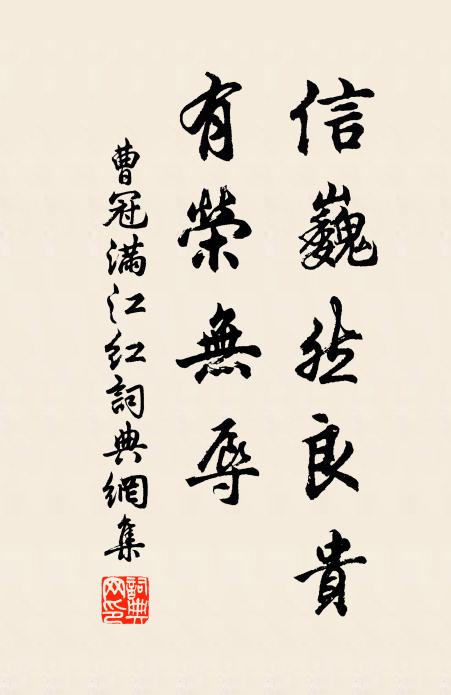 信巍然良貴
有榮無辱
曹冠滿江红詞典網集
詞典网印